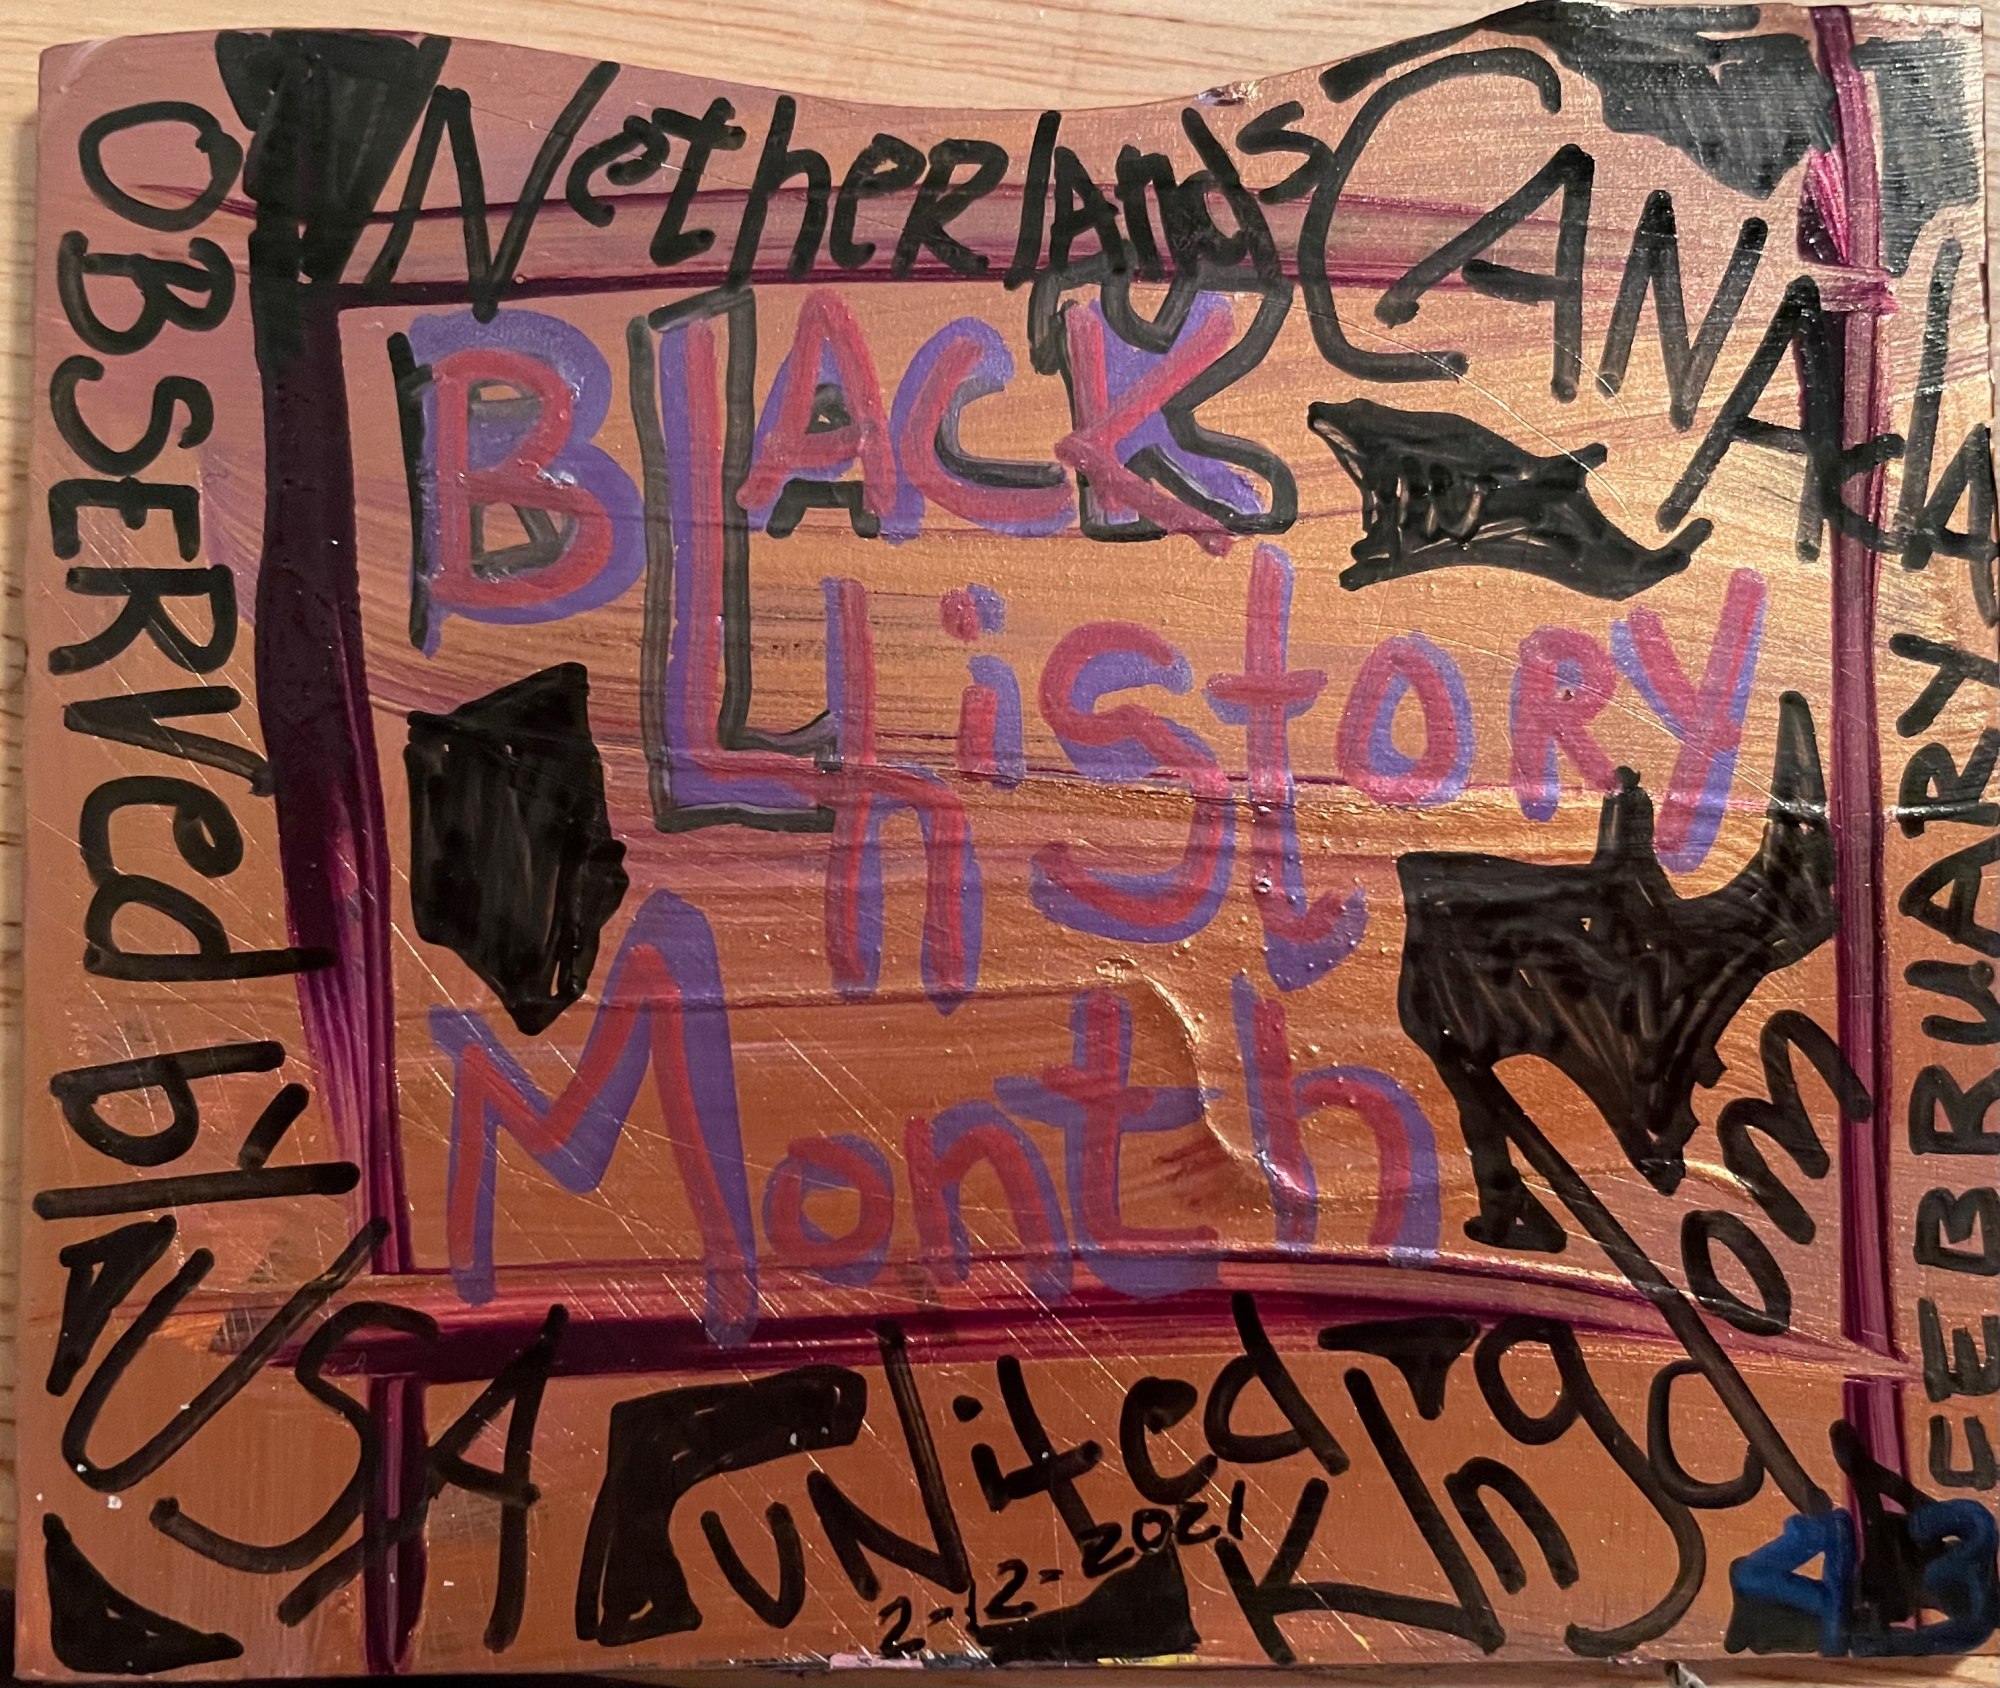 Netherlands
CANADA
OBSERVed by
USA
BLACK
History
Month
FEBRUARY
United
Kingdom
2-2-2021
43